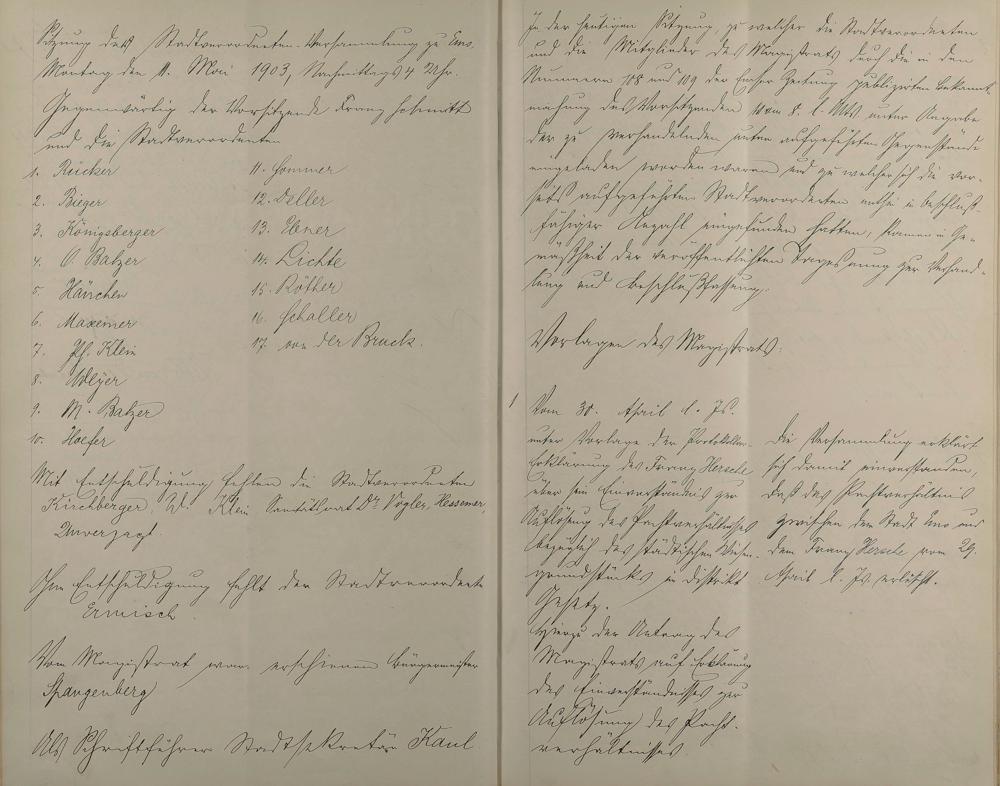 Sitzung der Stadtverordneten-Versammlung zu Ems.
Montag den 11. Mai 1903, Nachmittags 4 Uhr.
Gegenwärtig der Vorsitzende Franz Schmitt
und die Stadtverordneten
1. Rücker
2. Bieger
3. Königsberger
4. O. Balzer
5. Hänchen
6. Maxeiner
7. Ph. Klein
8. Weyer
9. M. Balzer
10. Hoefer
11. Sommer
12. Deller
13. Ebner
14. Lichte
15. Röther
16. Schaller
17. von der Bruck.
Mit Entschuldigung fehlen die Stadtverordneten
Kirchberger, W. Klein Sanitätsrat Dr. Vogler, Hessemer,
Unverzagt.
Ohne Entschuldigung fehlt der Stadtverordnete
Ermisch.
Vom Magistrat war erschienen Bürgermeister
Spangenberg
Als Schriftführer Stadtsekretär Kaul.
In der heutigen Sitzung, zu welcher die Stadtverordneten
und die Mitglieder des Magistrats durch die in den
Nummern 108 und 109 der Emser Zeitung publizirten Bekannt-
machung des Vorsitzenden vom 8. l. Mts unter Angabe
der zu verhandelnden unten aufgeführten Gegenstände
eingeladen worden waren und zu welcher sich die vor-
seits aufgeführten Stadtverordneten in beschluß-
fähiger Anzahl eingefunden hatten, kamen in Ge-
mäßheit der veröffentlichten Tagesordnung zur Verhand-
lung und Beschlußfassung:
Vorlagen des Magistrats:
1 Vom 30. April l. Js.
unter Vorlage der Protokollar-
Erklärung des Franz Hersche
über sein Einverständnis zur
Auflösung des Pachtverhältnisses
bezüglich des städtischen Wiesen-
grundstücks in Distrikt
Gesetz.
Hierzu der Antrag des
Magistrats auf Erklärung
des Einverständnisses zur
Auflösung des Pacht-
verhältnisses.
Die Versammlung erklärt
sich damit einverstanden,
daß das Pachtverhältnis
zwischen der Stadt Ems und
dem Franz Hersche vom 29.
April l. Js. erlischt.